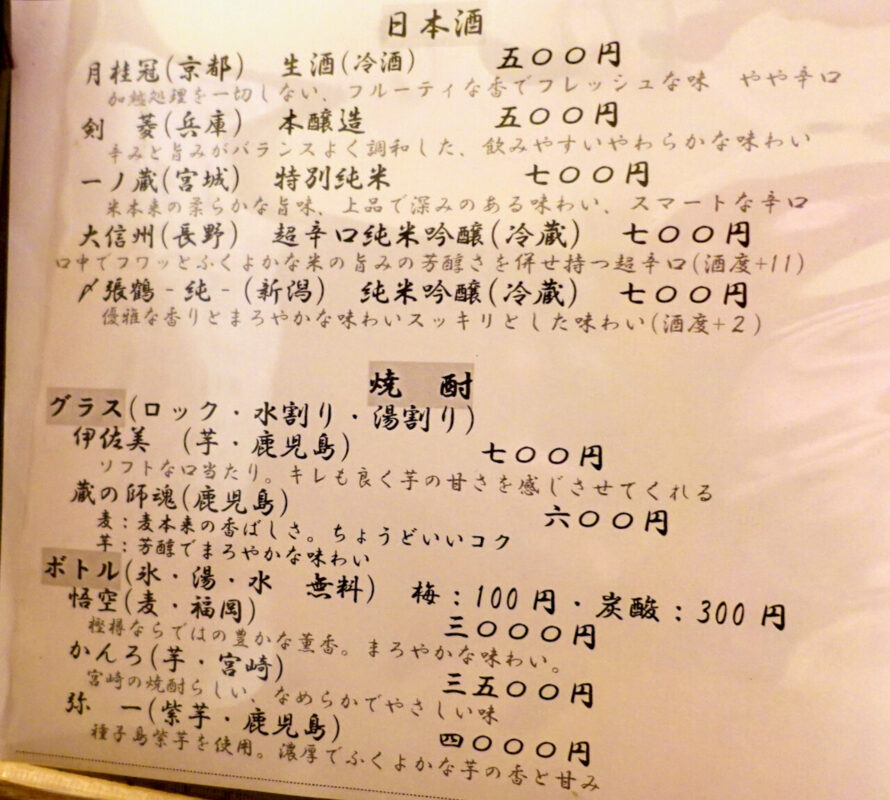 日本酒
月桂冠(京都) 生酒(冷酒) 五〇〇円
加熱処理を一切しない、フルーティな香でフレッシュな味 やや辛口
剣 菱(兵庫) 本醸造 五〇〇円
辛みと旨みがバランスよく調和した、飲みやすいやわらかな味わい
一ノ蔵(宮城) 特別純米 七〇〇円
米本来の柔らかな旨味、上品で深みのある味わい、スマートな辛口
大信州(長野) 超辛口純米吟醸(冷蔵) 七〇〇円
口中でフワッとふくよかな米の旨みの芳醇さを併せ持つ超辛口(酒度+11)
〆張鶴-純-(新潟) 純米吟醸(冷蔵) 七〇〇円
優雅な香りとまろやかな味わいスッキリとした味わい(酒度+2)
焼 酎
グラス(ロック・水割り・湯割り)
伊佐美 (芋・鹿児島) 七〇〇円
ソフトな口当たり。キレも良く芋の甘さを感じさせてくれる
蔵の師魂(鹿児島) 六〇〇円
麦:麦本来の香ばしさ。ちょうどいいコク
芋:芳醇でまろやかな味わい
ボトル(氷・湯・水 無料) 梅:100円・炭酸:300円
悟空(麦・福岡) 三〇〇〇円
樫樽ならではの豊かな薫香。まろやかな味わい。
かんろ(芋・宮崎) 三五〇〇円
宮崎の焼酎らしい、なめらかでやさしい味
弥 一(紫芋・鹿児島) 四〇〇〇円
種子島紫芋を使用。濃厚でふくよかな芋の香と甘み